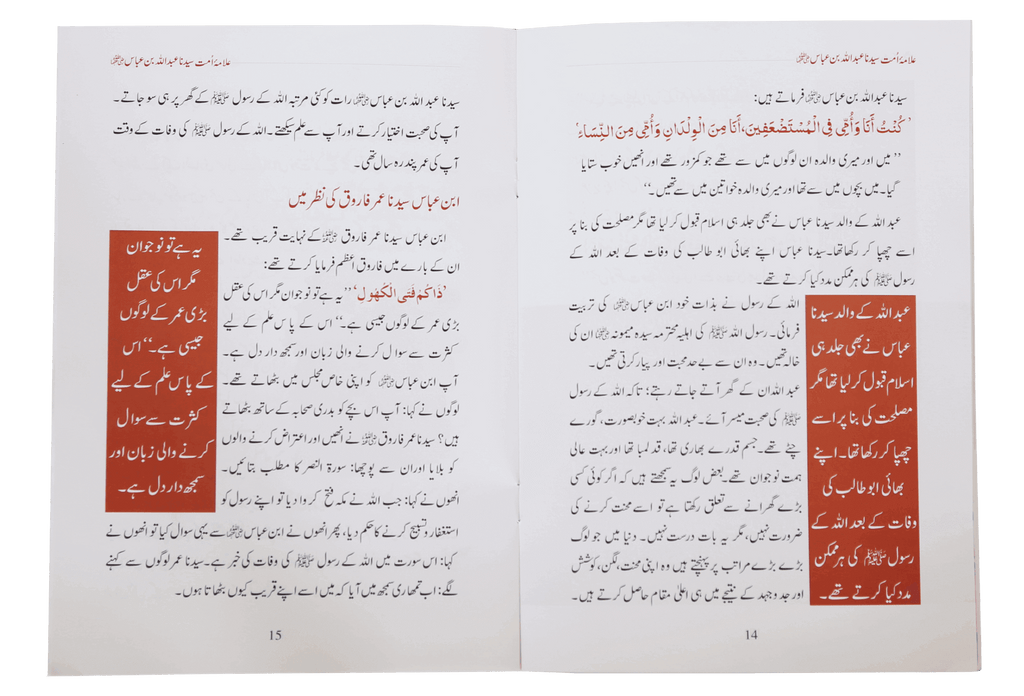 علامۂ اُمت سیدنا عبداللہ بن عباس رضی اللہ عنہما
سیدنا عبداللہ بن عباس رضی اللہ عنہما فرماتے ہیں:
’كُنْتُ أَنَا وَأُمِّي فِي الْمُسْتَضْعَفِينَ، أَنَا مِنَ الْوِلْدَانِ وَأُمِّي مِنَ النِّسَاءِ‘
’’میں اور میری والدہ ان لوگوں میں سے تھے جو کمزور تھے اور انھیں خوب ستایا
گیا۔ میں بچوں میں سے تھا اور میری والدہ خواتین میں سے تھیں۔‘‘
عبداللہ کے والد سیدنا عباس نے بھی جلد ہی اسلام قبول کر لیا تھا مگر مصلحت کی بنا پر
اسے چھپا کر رکھا تھا۔ سیدنا عباس اپنے بھائی ابو طالب کی وفات کے بعد اللہ کے
رسول ﷺ کی ہر ممکن مدد کیا کرتے تھے۔
اللہ کے رسول نے بذات خود ابن عباس رضی اللہ عنہما کی تربیت
فرمائی۔ رسول اللہ ﷺ کی اہلیہ محترمہ سیدہ میمونہ رضی اللہ عنہا ان کی
خالہ تھیں۔ وہ ان سے بے حد محبت اور پیار کرتی تھیں۔
عبداللہ ان کے گھر آتے جاتے رہتے؛ تاکہ اللہ کے رسول
ﷺ کی صحبت میسر آئے۔ عبداللہ بہت خوبصورت، گورے
چٹے تھے۔ جسم قدرے بھاری تھا، قد لمبا تھا اور بہت عالی
ہمت نوجوان تھے۔ بعض لوگ یہ سمجھتے ہیں کہ اگر کوئی کسی
بڑے گھرانے سے تعلق رکھتا ہے تو اسے محنت کرنے کی
ضرورت نہیں، مگر یہ بات درست نہیں۔ دنیا میں جو لوگ
بڑے بڑے مراتب پر پہنچتے ہیں وہ اپنی محنت، لگن، کوشش
اور جد و جہد کے نتیجے میں ہی اعلیٰ مقام حاصل کرتے ہیں۔
عبداللہ کے والد سیدنا
عباس نے بھی جلد ہی
اسلام قبول کر لیا تھا مگر
مصلحت کی بنا پر اسے
چھپا کر رکھا تھا۔ اپنے
بھائی ابو طالب کی
وفات کے بعد اللہ کے
رسول ﷺ کی ہر ممکن
مدد کیا کرتے تھے۔
14
علامۂ اُمت سیدنا عبداللہ بن عباس رضی اللہ عنہما
سیدنا عبداللہ بن عباس رضی اللہ عنہما رات کو کئی مرتبہ اللہ کے رسول ﷺ کے گھر پر ہی سو جاتے۔
آپ کی صحبت اختیار کرتے اور آپ سے علم سیکھتے۔ اللہ کے رسول ﷺ کی وفات کے وقت
آپ کی عمر پندرہ سال تھی۔
ابن عباس سیدنا عمر فاروق کی نظر میں
ابن عباس سیدنا عمر فاروق رضی اللہ عنہ کے نہایت قریب تھے۔
ان کے بارے میں فاروق اعظم فرمایا کرتے تھے:
’ذَاكُمْ فَتَى الْكُهُولِ‘ ’’یہ ہے تو نوجوان مگر اس کی عقل
بڑی عمر کے لوگوں جیسی ہے۔‘‘ اس کے پاس علم کے لیے
کثرت سے سوال کرنے والی زبان اور سمجھ دار دل ہے۔
آپ ابن عباس رضی اللہ عنہما کو اپنی خاص مجلس میں بٹھاتے تھے۔
لوگوں نے کہا: آپ اس بچے کو بدری صحابہ کے ساتھ بٹھاتے
ہیں؟ سیدنا عمر فاروق رضی اللہ عنہ نے انھیں اور اعتراض کرنے والوں
کو بلایا اور ان سے پوچھا: سورۃ النصر کا مطلب بتائیں۔
انھوں نے کہا: جب اللہ نے مکہ فتح کروا دیا تو اپنے رسول کو
استغفار و تسبیح کرنے کا حکم دیا، پھر انھوں نے ابن عباس رضی اللہ عنہما سے یہی سوال کیا تو انھوں نے
کہا: اس سورت میں اللہ کے رسول ﷺ کی وفات کی خبر ہے۔ سیدنا عمر لوگوں سے کہنے
لگے: اب تمھاری سمجھ میں آیا کہ میں اسے اپنے قریب کیوں بٹھاتا ہوں۔
یہ ہے تو نوجوان
مگر اس کی عقل
بڑی عمر کے لوگوں
جیسی ہے۔‘‘ اس
کے پاس علم کے لیے
کثرت سے سوال
کرنے والی زبان اور
سمجھ دار دل ہے۔
15